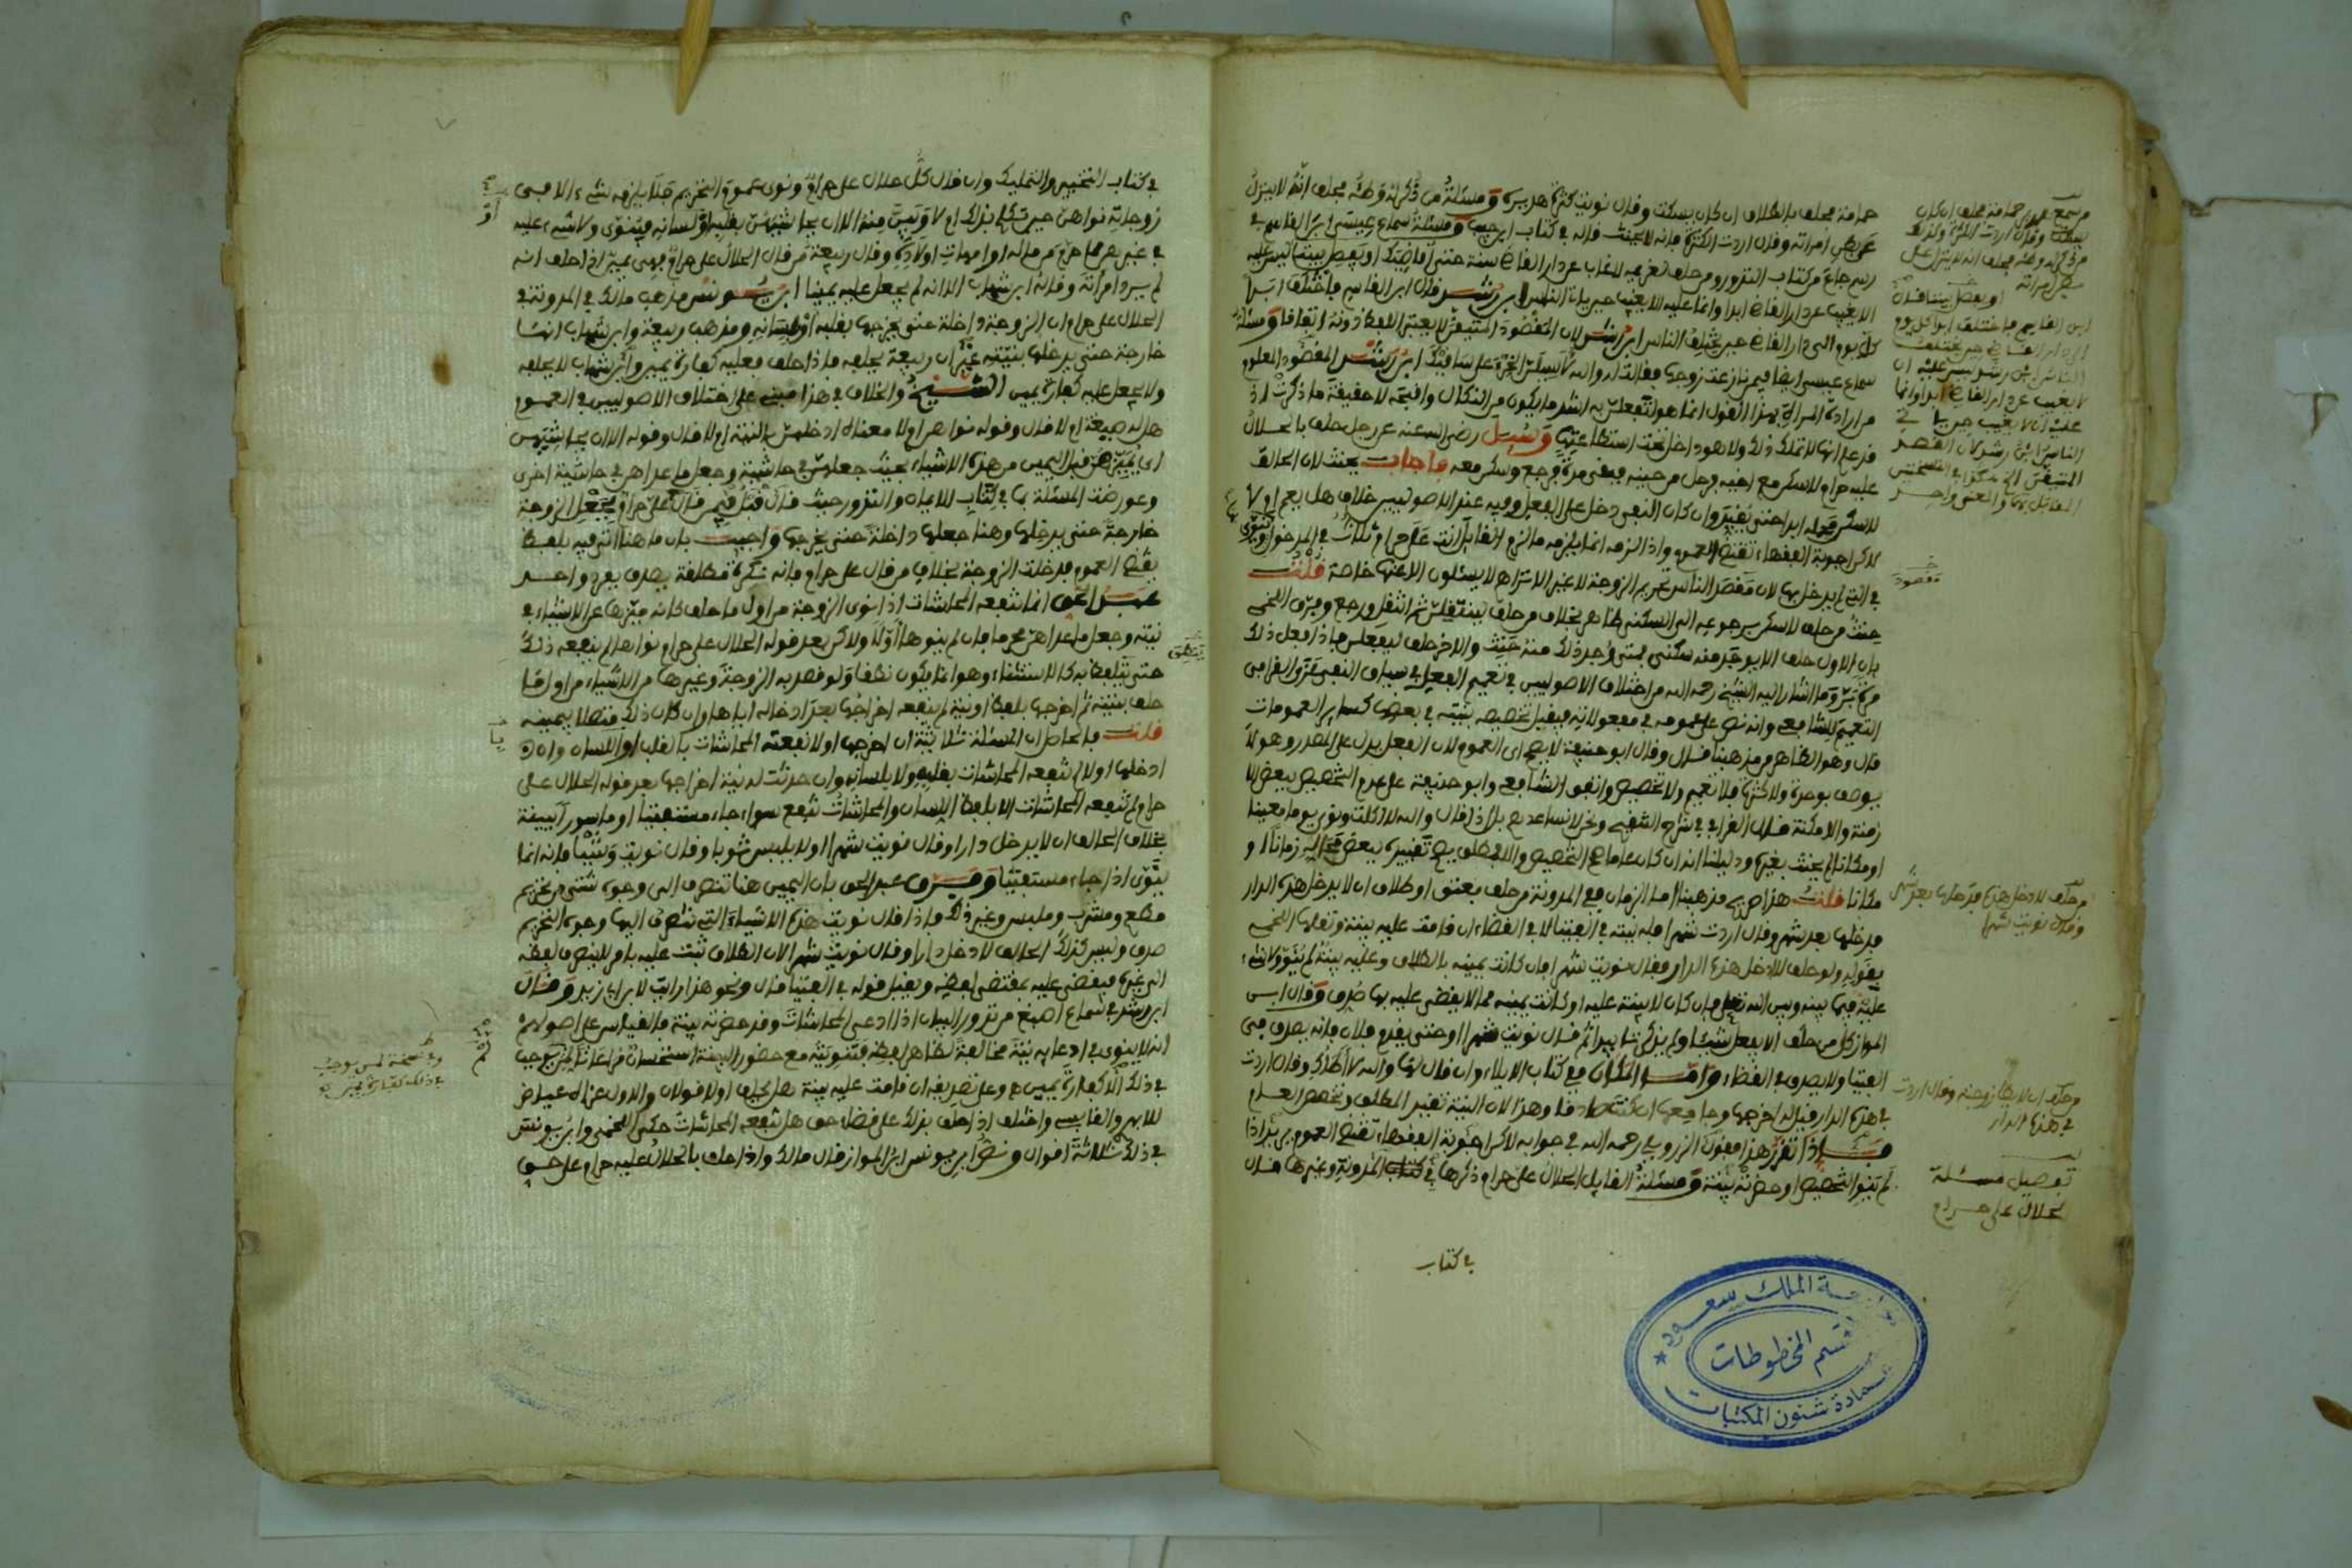 حمامة فحلف بالطلاق ان كان يسكت وقال نويت كثرة هديره ومسئلة من ذكر له وطئه فحلف انه لا ينزل
على بطن امراته وقال اردت الكثرة فانه لا يحنث قاله في كتاب ابن حبيب ومسئلة سماع عيسى ابن القاسم في
رسم جاع من كتاب النذور ومن حلف لغريمه لا غاب عن دار القاضي سنة حتى اقاضيك او يقضي بيننا ليس عليه
الا يغيب عن دار القاضي ابدا وانما عليه الا يغيب حين ياتي الناس ابن رشد قال ابن القاسم ما اختلف
كل يوم الى دار القاضي حين يختلف الناس ابن رشد لان المقصود المتيقن لا يعتبر اللفظ دونه اتفاقا ومسئلة
سماع عيسى ايضا فيمن نازعت زوجها فقالت له والله لا ابن رشد المقصود المعلوم
من ارادة المراة بهذا القول انما هو لتفعلن به اشد ما يكون من النكال واقبحه لا حقيقة ما ذكرت اذ
قد علم انها لا تملك ذلك ولا هو داخل تحت استطاعتها وسئل رضي الله عنه عن رجل حلف بالحلال
عليه حرام لا سكن مع اخيه فرحل من حينه فبقي مدة ورجع وسكن معه فاجاب يحنث لان الحالف
لا سكن محله ابدا حتى يقيد وان كان النفي دخل على الفعل وفيه عند الاصوليين خلاف هل يعم او لا
لاكن اجوبة الفقهاء تقتضي العموم واذا لزمه انما يلزمه ما لزم القايل انت علي حرام ثلاث في المدخول وينوى
في التي لم يدخل بها لان مقصد الناس تحريم الزوجة لا غير الا تراهم لا يسئلون الا عنها خاصة قلت
حنث من حلف لا سكن برجوعه الى السكنى ظاهر بخلاف من حلف لينتقلن ثم انتقل ورجع وفرق اللخمي
بان الاول حلف الا يوجد منه سكنى فمتى وجد ذلك منه حنث والاخر حلف ليفعلن فاذا فعل ذلك
مرة بر وما اشار اليه الشيخ رحمه الله من اختلاف الاصوليين في تعميم الفعل في سياق النفي عزو القرافي
التعميم للشافعي وانه نص على عمومه في مفعولاته فيقبل تخصيصه بنيته في بعضها كساير العمومات
قال وهو الظاهر من مذهبنا قال وقال ابو حنيفة لا يصح اي العموم لان الفعل يدل على المصدر وهو لا
يوصف بوحدة ولا كثرة فلا تعميم ولا تخصيص واتفق الشافعي وابو حنيفة على عدم التخصيص ببعض الا
زمنة والامكنة قال القرافي في شرح التنقيح ونحن لا نساعدهم بل اذا قال والله لا اكلت ونوى يوما معينا
او مكانا لم يحنث بغيره ودليلنا انه ان كان عاما صح التخصيص والا فمطلق يصح تقييده ببعض محاله زمانا او
مكانا قلت هذا صريح مذهبنا اما الزمان ففي المدونة من حلف بعتق او طلاق ان لا يدخل هذه الدار
فدخلها بعد شهر وقال اردت شهرا فله نيته في الفتيا لا في القضاء ان قامت عليه بينة ونقلها اللخمي
بقوله ولو حلف لا ادخل هذه الدار وقال نويت شهرا فان كانت يمينه بالطلاق وعليه بينة لم ينو ولا شيء
عليه فيما بينه وبين الله تعالى فان كان لا بينة عليه او كانت يمينه مما لا يقضى عليه بها صدق وقال ابن
المواز كل من حلف الا يفعل شيئا ولم يذكر تابيدا ثم قال نويت شهرا او حتى يقدم فلان فانه يصدق في
الفتيا ولا يصدق في القضاء واما المكان ففي كتاب الايلاء وان قال لها والله لا اطاك وقال اردت
في هذه الدار قيل له اخرجها وجامعها ان كنت صادقا وهذا لان النية تقيد المطلق وتخصص العام
فاذا تقرر هذا فقول الزروي رحمه الله في جوابه لاكن اجوبة الفقهاء تقتضي العموم يريد اذا
لم ينو التخصيص او حضرته بينة ومسئلة القايل الحلال علي حرام ذكرها في كتاب المدونة وغيرها قال
في كتاب
من سمع هدير حمامة فحلف ان كان
يسكت وقال اردت الكثرة وكذلك
من ذكر له وطئه فحلف انه لا ينزل على
بطن امراته
او يقضي بيننا قال
ابن القاسم ما اختلف ابدا كل يوم
الى دار القاضي حين يختلف
الناس ابن رشد ليس عليه ان
لا يغيب عن دار القاضي ابدا وانما
عليه ان لا يغيب حين ياتي
الناس ابن رشد لان القصد
المتيقن الخ هكذا في النسختين
المقابل بهما والمعنى واحد
مقصود
من حلف لا دخل هذه فدخلها بعد شهر
وقال نويت شهرا
من حلف ان لا يطا زوجته وقال اردت
في هذه الدار
تفصيل مسئلة
الحلال على حرام
جامعة الملك سعود
قسم المخطوطات
عمادة شئون المكتبات
في كتاب التخيير والتمليك وان قال كل حلال علي حرام ونوى عموم التحريم فلا يلزمه شيء الا في
زوجاته نواهن حين تكلم بذلك ام لا وتبين منه الا ان يحاشيهن بقلبه او لسانه فينوى ولا شيء عليه
في غيرهن مما حرم من ماله او امهات اولاده وقال ربيعة من قال الحلال علي حرام فهي يمين اذا حلف انه
لم يرد امراته وقاله ابن شهاب الا انه لم يجعل عليه يمينا ابن يونس مذهب مالك في المدونة في
الحلال علي حرام ان الزوجة داخلة حتى يخرجها بقلبه او بلسانه ومذهب ربيعة وابن شهاب انها
خارجة حتى يدخلها بنيته غير ان ربيعة يحلفه فاذا حلف فعليه كفارة يمين وابن شهاب لا يحلفه
ولا يجعل عليه كفارة يمين الشيخ والخلاف في هذا مبني على اختلاف الاصوليين في العموم
هل له صيغة ام لا قال وقوله نواهن ام لا معناه ادخلهن بالنية ام لا قال وقوله الا ان يحاشيهن
اي يميزهن قبل اليمين من هذه الاشياء بحيث جعلهن في حاشية وجعل ما عداهن في حاشية اخرى
وعورضت المسئلة بما في كتاب الايمان والنذور حيث قال فيمن قال علي حرام فجعل الزوجة
خارجة حتى يدخلها وهنا جعلها داخلة حتى يخرجها واجيب بان ما هنا اتى فيه بلفظ
يقتضي العموم فدخلت الزوجة بخلاف من قال علي حرام فانه نكرة مطلقة يصدق بفرد واحد
عبد الحق انما تنفعه المحاشات اذا نوى الزوجة من اول ما حلف كانه ميزها عن الاشياء في
نيته وجعل ما عداهن محرما فان لم ينوها اولا ولاكن بعد قوله الحلال علي حرام نواها لم ينفعه ذلك
حتى يتلفظ به كالاستثناء وهو انما يكون نطقا ولو قصد به الزوجة وغيرها من الاشياء من اول ما
حلف بنيته ثم اخرجها بلفظ او نية لم ينفعه اخراجها بعد ادخاله اياها وان كان ذلك متصلا بيمينه
قلت فالحاصل ان المسئلة ثلاثية ان اخرجها اولا نفعته المحاشات بالقلب او اللسان وان
ادخلها اولا لم تنفعه المحاشات بقلبه ولا بلسانه وان حدثت له نية اخراجها بعد قوله الحلال علي
حرام لم تنفعه المحاشات الا بلفظ اللسان والمحاشات تنفع سواء جاء مستفتيا او ماسورا ببينة
بخلاف الحالف ان لا يدخل دارا وقال نويت شهرا او لا يلبس ثوبا وقال نويت وشيا فانه انما
ينوى اذا جاء مستفتيا وفرق عبد الحق بان اليمين هنا تنصرف الى وجوه شتى من تحريم
مطعم ومشرب وملبس وغير ذلك فاذا قال نويت هذه الاشياء التي تنصرف اليها وجوه التحريم
صدق وليس كذلك الحالف لا دخل دارا وقال نويت شهرا لان الطلاق ثبت عليه بامر لا ينصرف لفظه
الى غيره فيقضى عليه بمقتضى لفظه ويقبل قوله في الفتيا قال ونحو هذا رايت لابن ابي زيد وقال
ابن رشد في سماع اصبغ من نذور البيان اذا ادعى المحاشات وقد حضرته بينة فالقياس على اصولهم
انه لا ينوى في ادعايه نية مخالفة لظاهر لفظه فتنويته مع حضور البينة استحسان مراعاة لمن يوجب
في ذلك الا كفارة يمين وعلى تصديقه ان قامت عليه بينة هل يحلف اولا قولان والاول عزاه عياض
للابهري والقابسي واختلف اذا حلف بذلك على قضاء حق هل تنفعه المحاشات حكى اللخمي وابن يونس
في ذلك ثلاثة اقوال ونص ابن يونس ابن المواز قال مالك واذا حلف بالحلال عليه حرام على حق
وفي نسخة لمن يوجب
في ذلك كفارة يمين